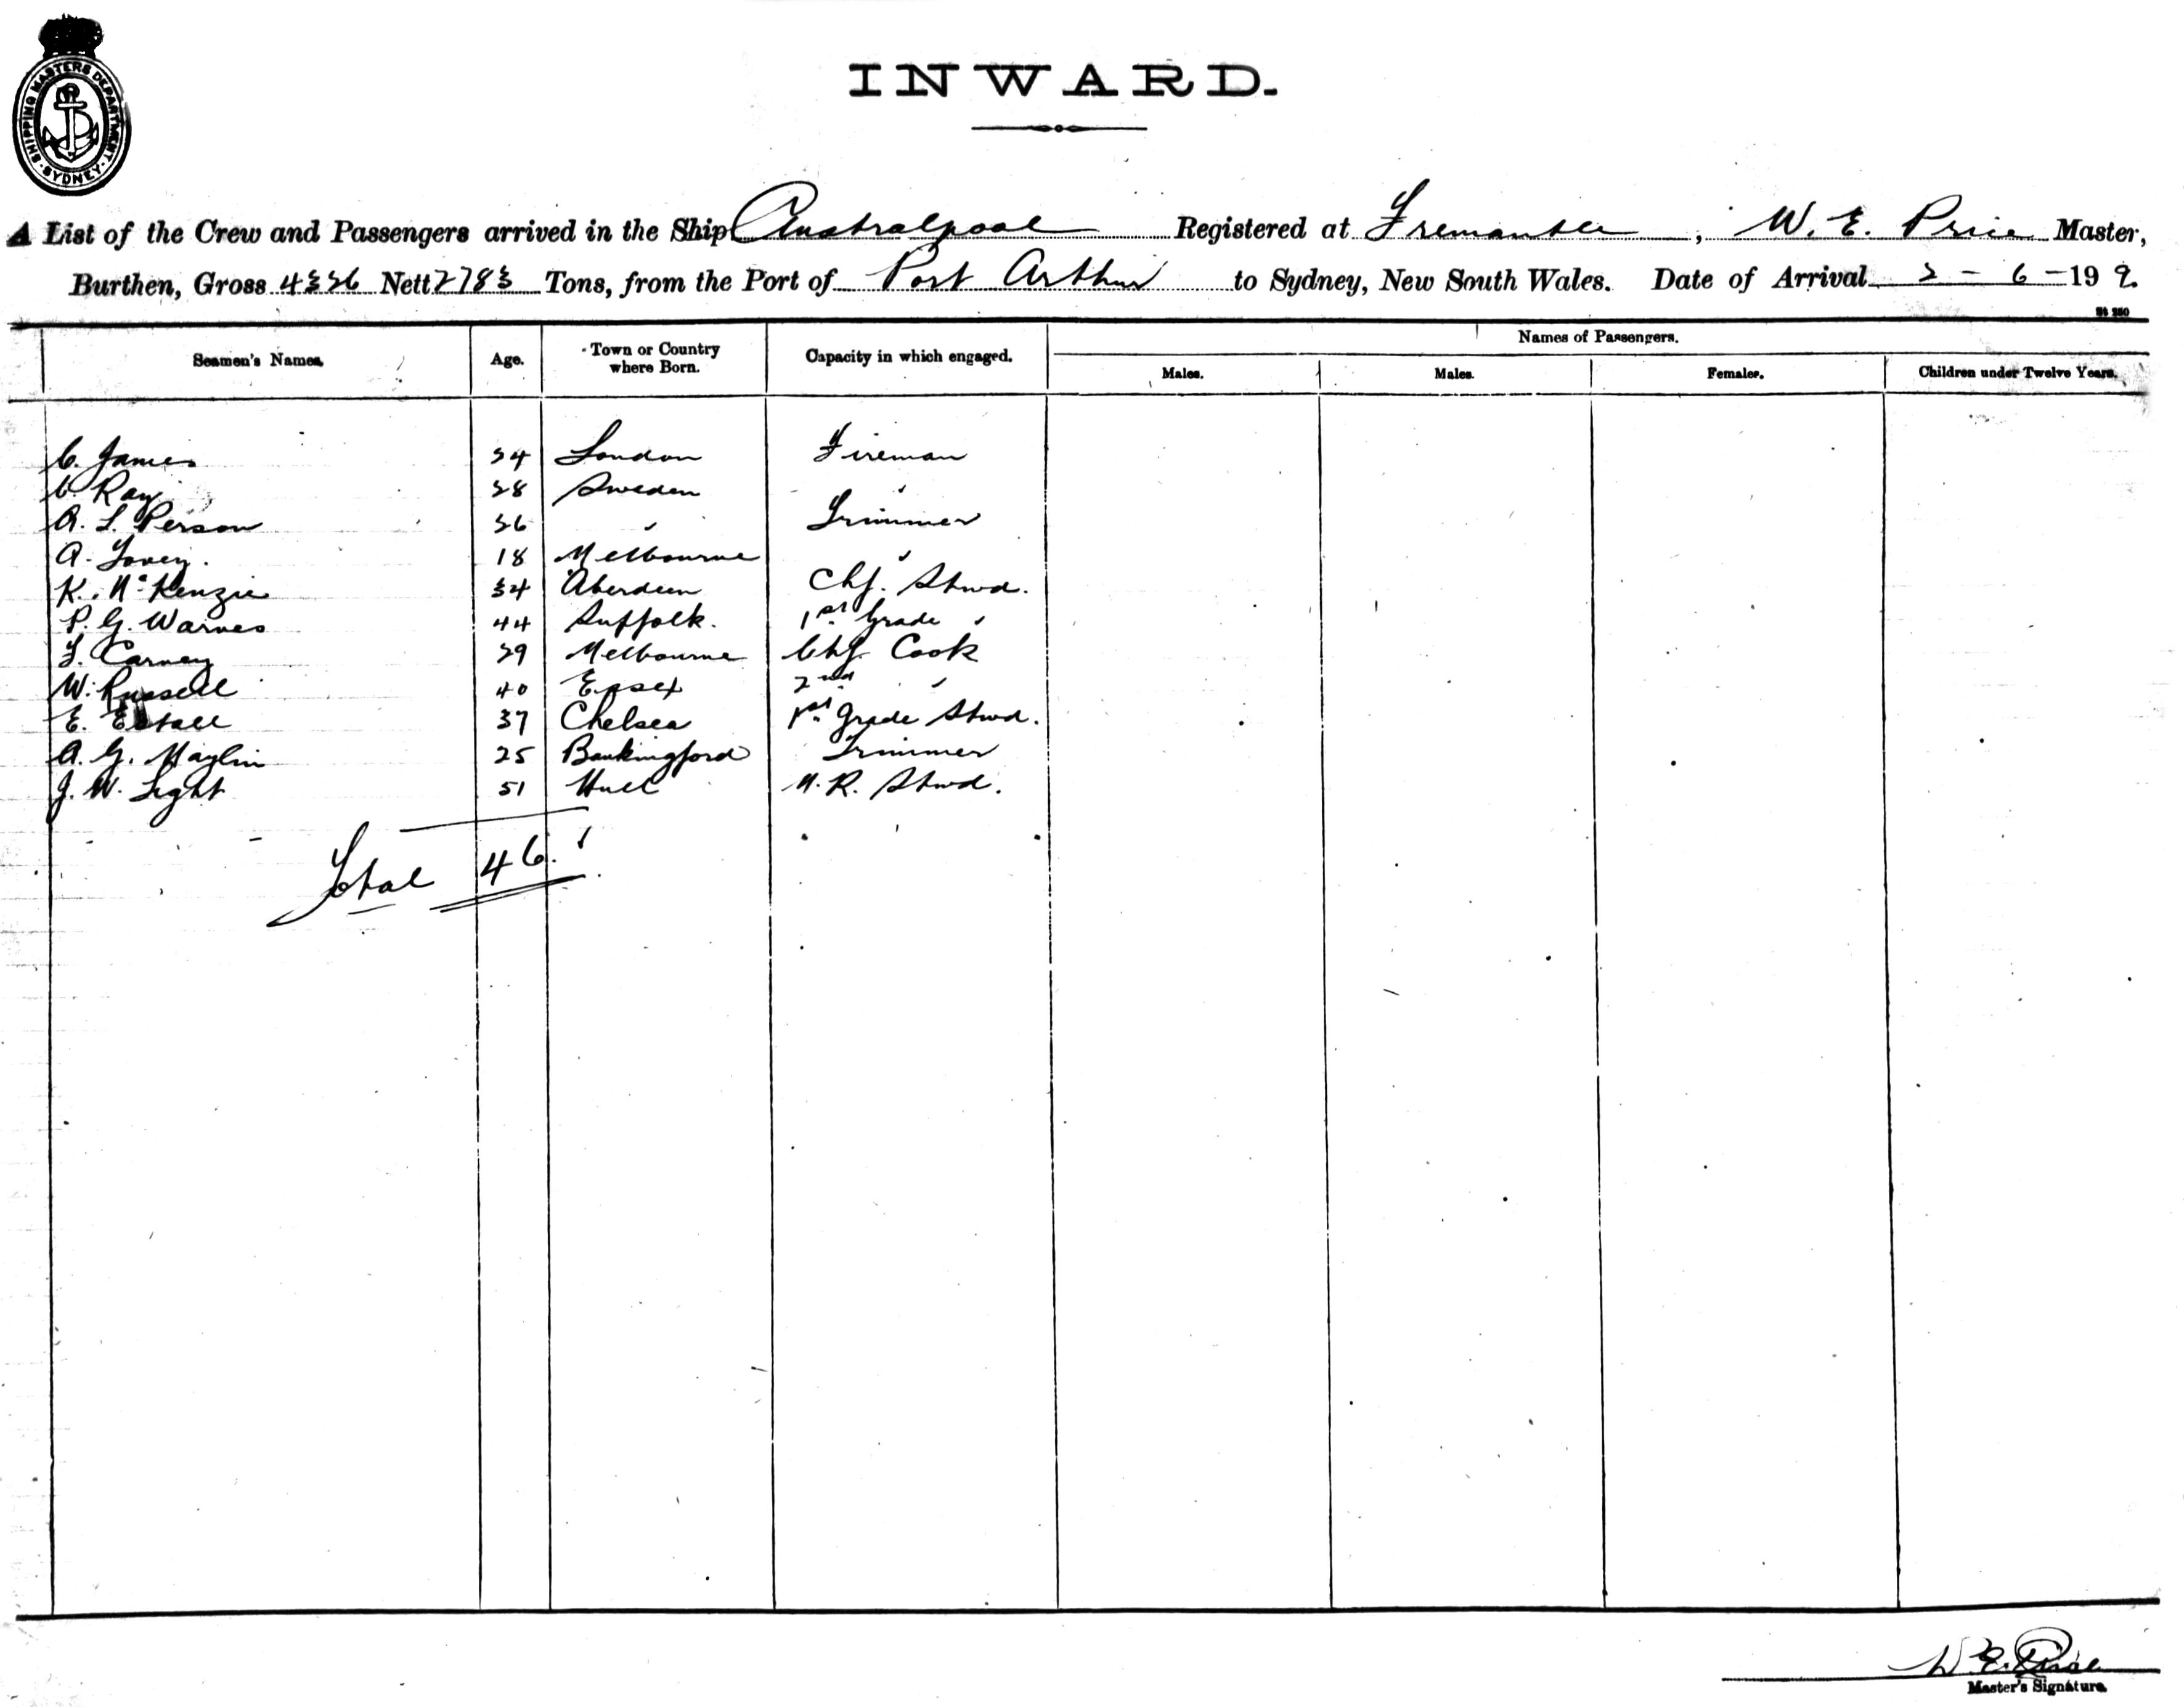 SHIPPING MASTERS DEPARTMENT · SYDNEY ·
INWARD.
A List of the Crew and Passengers arrived in the Ship Australpool Registered at Fremantle, W. E. Price Master,
Burthen, Gross 4326 Nett 2783 Tons, from the Port of Port Arthur to Sydney, New South Wales. Date of Arrival 2 - 6 - 19
Names of Passengers.
Seamen's Names. Age. Town or Country where Born. Capacity in which engaged. Males. Males. Females. Children under Twelve Years.
C. James 24 London Fireman
C. Ray 28 Sweden "
A. L. Person 26 " Trimmer
A. 18 Melbourne "
K. McKenzie 34 Aberdeen Chf. Stwd.
P. G. Warnes 44 Suffolk. 1st Grade "
Carney 29 Melbourne Chf. Cook
W. Russell 40 Essex 2nd "
E. Estall 37 Chelsea 1st grade Stwd.
A. G. Maylin 25 Trimmer
J. W. Light 51 Hull M. R. Stwd.
Total 46.
W. E. Price
Master's Signature.